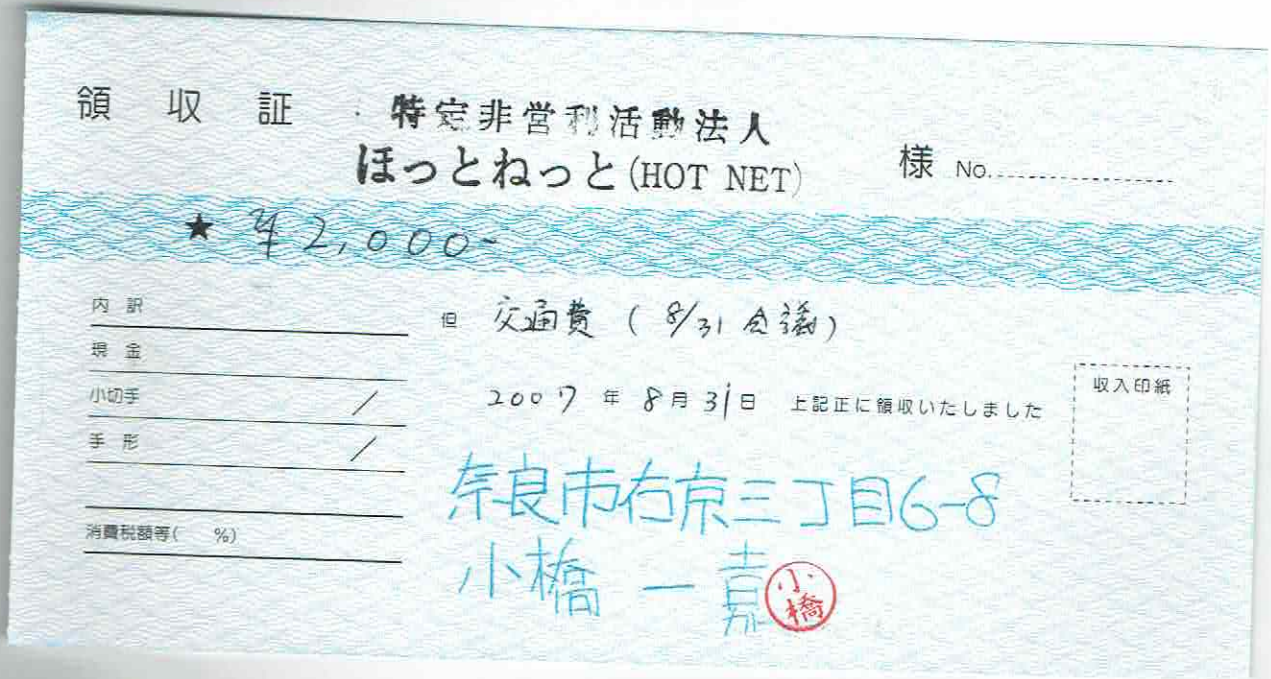 領収証 特定非営利活動法人
ほっとねっと(HOT NET) 様 No.
★ ¥2,000-
内訳
現金
小切手 /
手形 /
消費税額等( %)
但 交通費 (8/31 会議)
2007年 8月31日 上記正に領収いたしました
収入印紙
奈良市右京三丁目6-8
小橋 一嘉
小橋